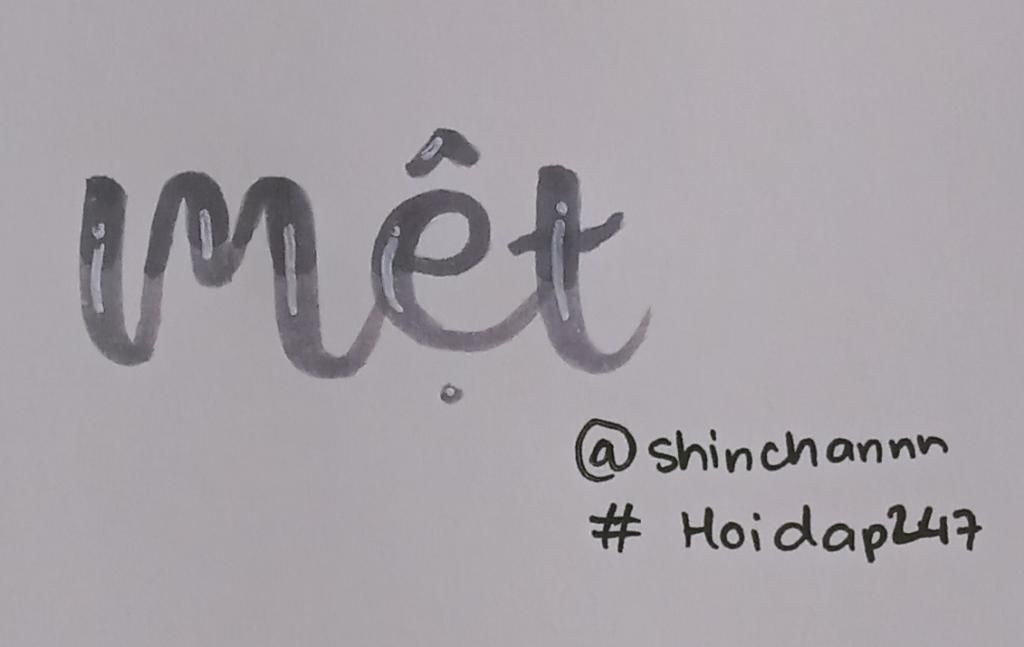 mệt
@shinchannn
# Hoidap247